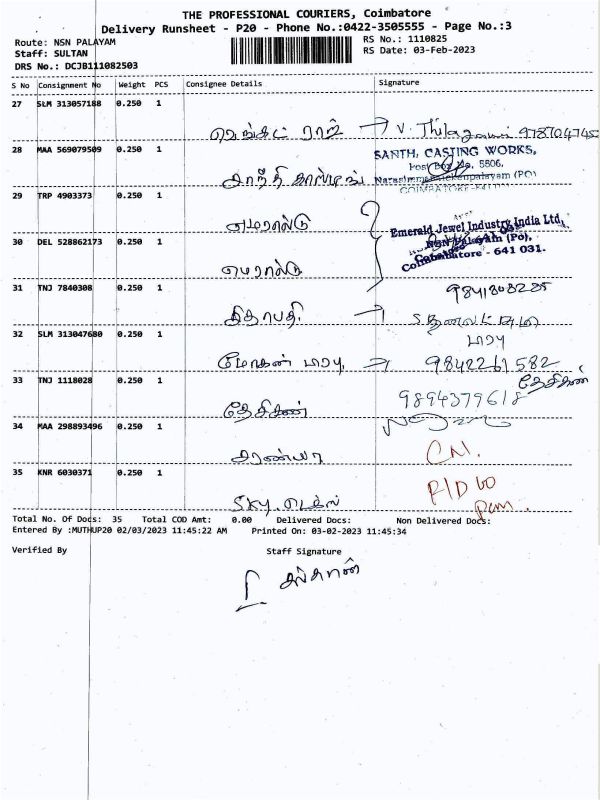 THE PROFESSIONAL COURIERS, Coimbatore
Delivery Runsheet - P20 - Phone No.:0422-3505555 - Page No.:3
Route: NSN PALAYAM
RS No.: 1110825
Staff: SULTAN
RS Date: 03-Feb-2023
DRS No.: DCJB111082503
S No Consignment No Weight PCS Consignee Details Signature
27 SLM 313057188 0.250 1
வெங்கட் ராஜ் → V.
28 MAA 569079509 0.250 1
SANTH, CASTING WORKS,
Post Box No. 5806,
சாந்தி காஸ்டிங்
29 TRP 4903373 0.250 1
எமரால்டு
Emerald Jewel Industry India Ltd,
30 DEL 528862173 0.250 1
NSN Palayam (Po),
Coimbatore - 641 031.
எமரால்டு
31 TNJ 7840308 0.250 1
→
32 SLM 313047680 0.250 1
மோகன் பாபு, → 9842261582
33 TNJ 1118028 0.250 1
தேசிகன்
9894379618
தேசிகன்
34 MAA 298893496 0.250 1
சரண்யா
35 KNR 6030371 0.250 1
R/D
SKY
Total No. Of Docs: 35 Total COD Amt: 0.00 Delivered Docs: Non Delivered Docs:
Entered By :MUTHUP20 02/03/2023 11:45:22 AM Printed On: 03-02-2023 11:45:34
Verified By Staff Signature